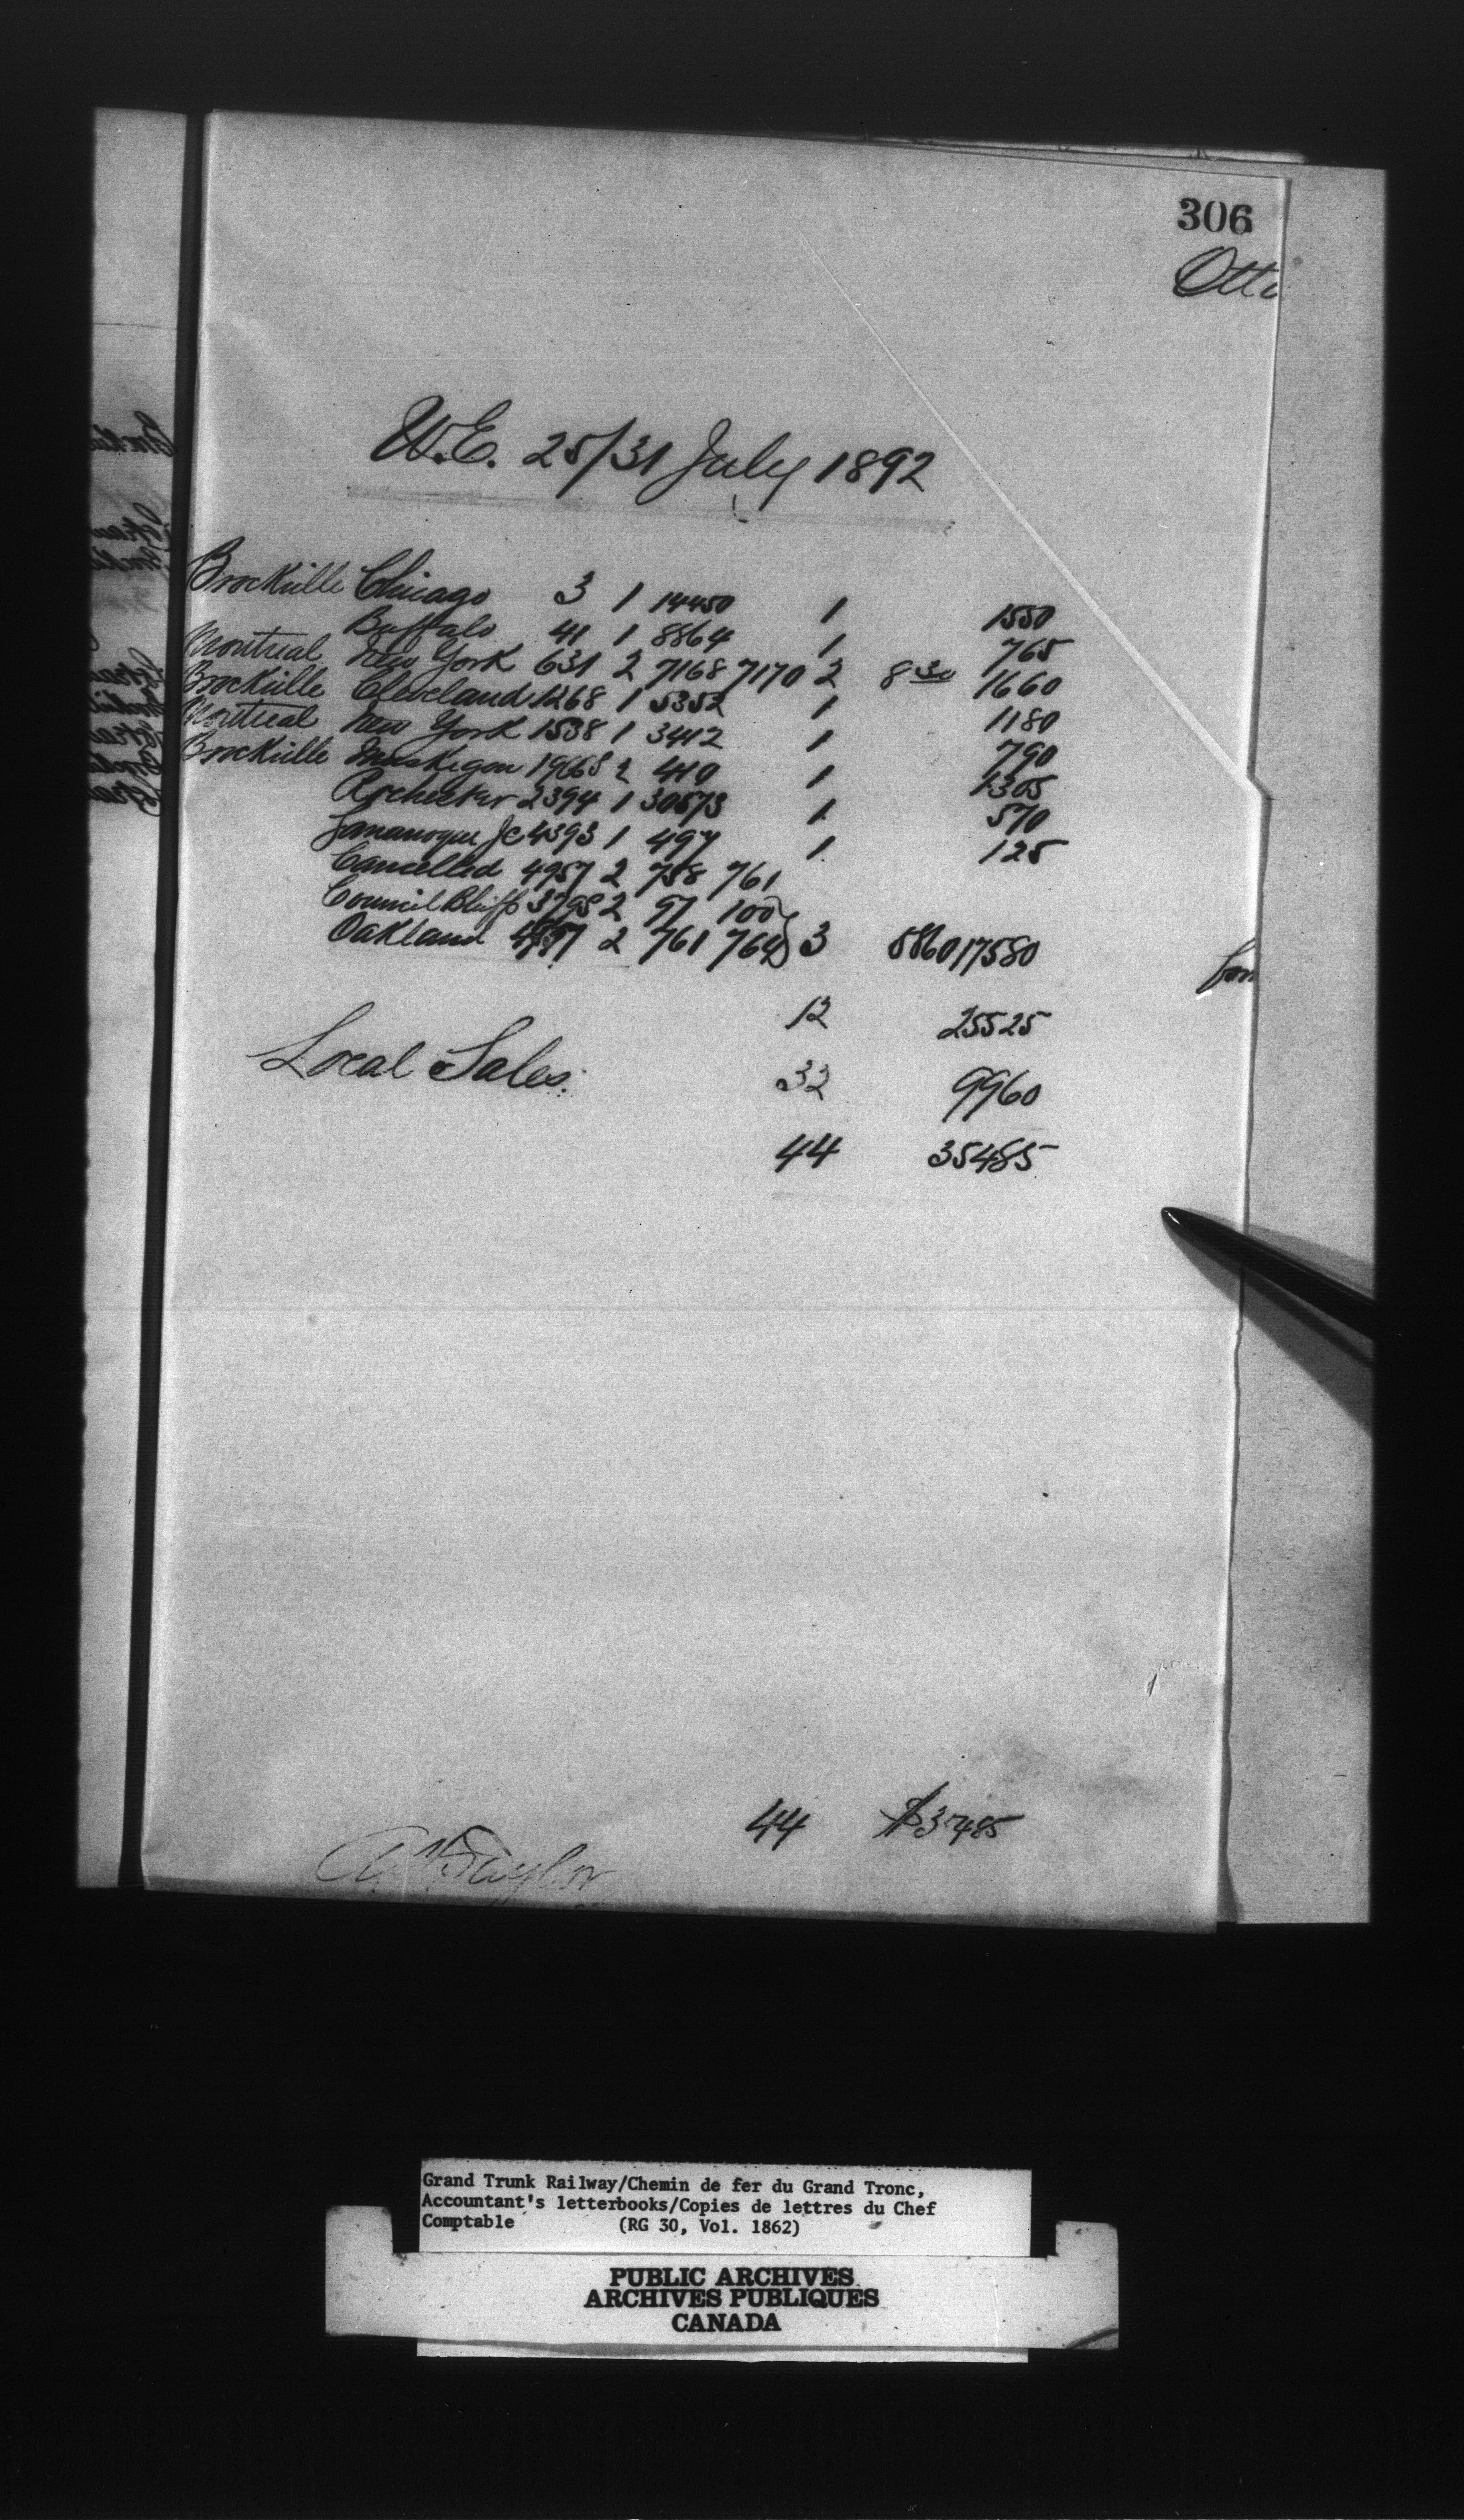 306
Otta
W.E. 25/31 July 1892
Brockville Chicago 3 1 14450 1 1550
Buffalo 41 1 8864 1 765
Montreal New York 631 2 7168 7170 2 8 30 1660
Brockville Cleveland 1268 1 5352 1 1180
Montreal New York 1538 1 3412 1 790
Brockville Muskegon 1966S 2 410 1 1305
Rochester 2394 1 30573 1 570
Gananoque Jc 4393 1 497 1 125
Cancelled 4957 2 758 761
Council Bluffs 3798 2 97 100
Oakland 4957 2 761 764 3 5860 17580
12 25525
Local Sales. 32 9960
44 35485
44 $35485
Taylor
Grand Trunk Railway/Chemin de fer du Grand Tronc,
Accountant's letterbooks/Copies de lettres du Chef
Comptable (RG 30, Vol. 1862)
PUBLIC ARCHIVES
ARCHIVES PUBLIQUES
CANADA